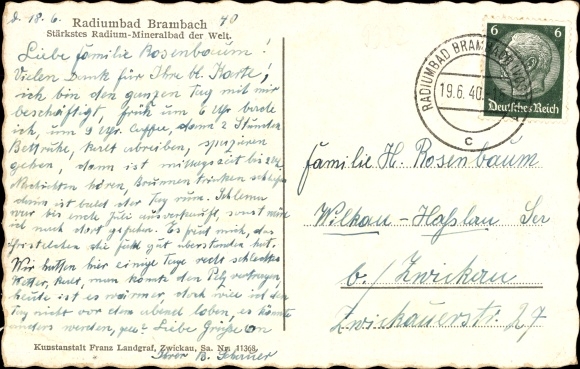 d. 18.6. 40
Radiumbad Brambach
Stärkstes Radium-Mineralbad der Welt.
Liebe Familie Rosenbaum!
Vielen Dank für Ihre bl. Karte,
ich bin den ganzen Tag mit mir
beschäftigt, früh um 6 Uhr bade
ich, um 9 Uhr Caffee, dann 2 Stunden
Bettruhe, halt schreiben, spazieren
gehen, dann ist mittagszeit bis
Nachrichten hören, Brunnen trinken
dann ist bald der Tag rum.
war bis ende Juli ausverkauft, sonst wäre
ich noch dort gefahren. Es freut mich, das
die gut überstanden hat.
Wir hatten hier einige Tage recht schlechtes
Wetter, kalt, man konnte den Pelz vertragen,
heute ist es wärmer, doch will ich den
Tag nicht vor dem abend loben, es könnte
anders werden, Liebe Grüße von
Ihrer B.
Kunstanstalt Franz Landgraf, Zwickau, Sa. Nr. 11368
RADIUMBAD BRAMBACH (VOGTL)
19.6.40
c
6 6
Deutsches Reich
Familie H. Rosenbaum
Wilkau-Haßlau
b./ Zwickau
Zwickauerstr. 27